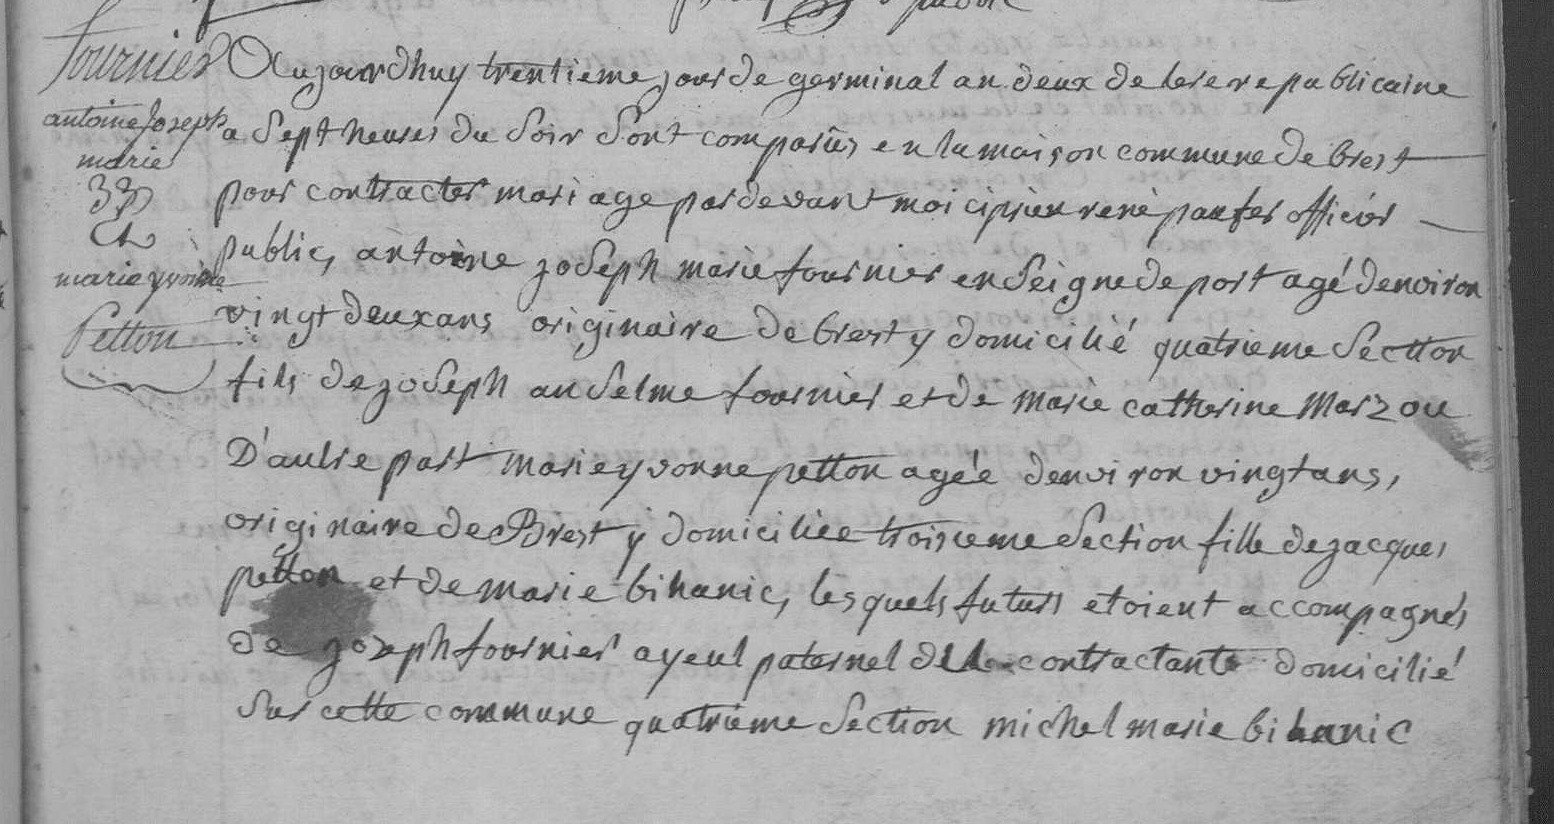 fournier
antoine Joseph
marie
33
Et
marie yvonne
Petton
Aujourdhuy trentieme jour de germinal an deux de lere republicaine
a Sept heures du Soir Sont comparûs en la maison commune de brest
pour contracter mariage par devant moi ciprien rené paufer officier
public, antoine joseph marie fournier enseigne de port agé denviron
vingt deux ans originaire de brest y domicilié quatrieme Section
fils de joseph anselme fournier et de marie catherine Marzou
D'autre part marie yvonne petton agée denviron vingt ans,
originaire de Brest y domiciliée troisieme Section fille de jacques
petton et de marie bihanic, les quels futurs etoient accompagnés
de joseph fournier ayeul paternel de contractant domicilié
Sur cette commune quatrieme Section michel marie bihanic